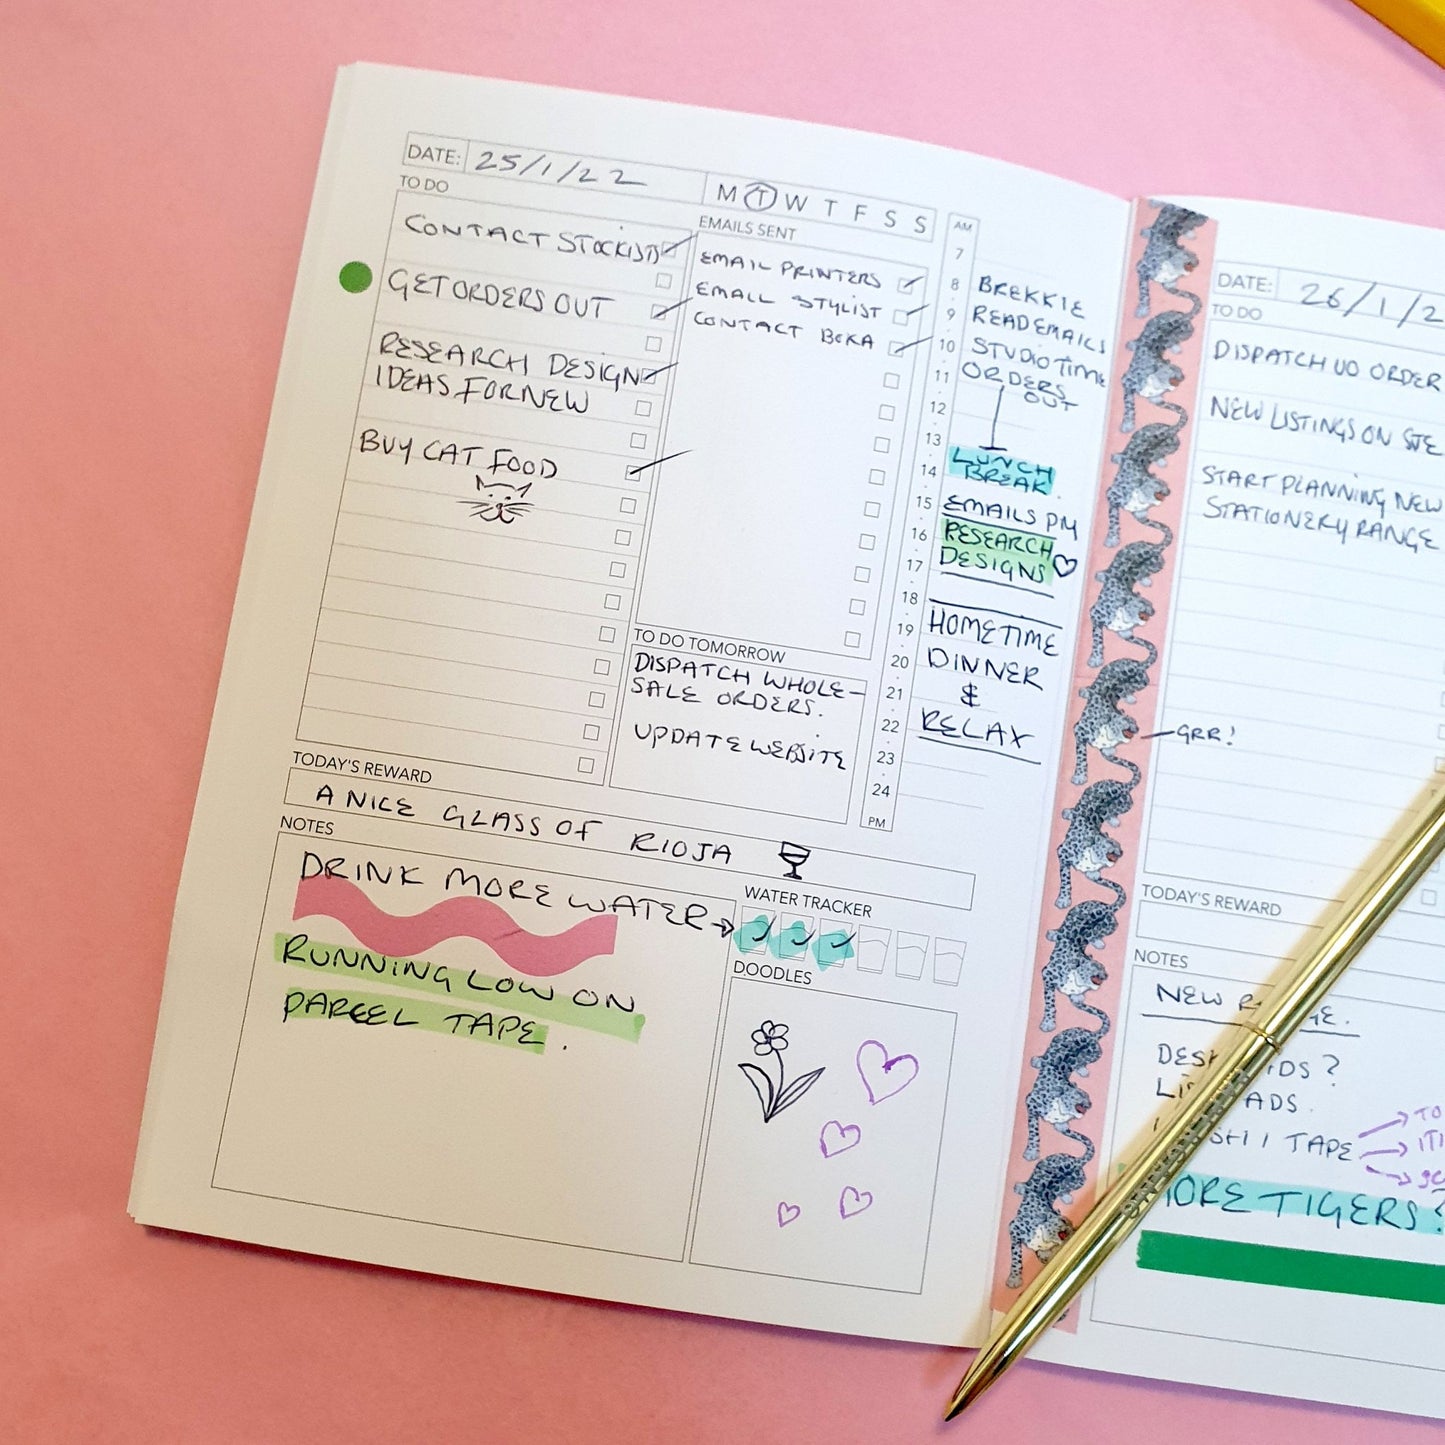 DATE: 25/1/22
M T W T F S S
TO DO
CONTACT STOCKISTS
GET ORDERS OUT
RESEARCH DESIGN
IDEAS FOR NEW
BUY CAT FOOD
EMAILS SENT
EMAIL PRINTERS
EMAIL STYLIST
CONTACT BEKA
TO DO TOMORROW
DISPATCH WHOLE-
SALE ORDERS.
UPDATE WEBSITE
AM
7
8 BREKKIE
9 READ EMAILS
10 STUDIO TIME
11 ORDERS
OUT
12
13
LUNCH
14 BREAK
15 EMAILS PM
16 RESEARCH
17 DESIGNS
18
19 HOMETIME
20 DINNER
21 &
22 RELAX
23
24
PM
TODAY'S REWARD
A NICE GLASS OF RIOJA
NOTES
DRINK MORE WATER
RUNNING LOW ON
PARCEL TAPE.
WATER TRACKER
DOODLES
GRR!
DATE: 26/1/2
TO DO
DISPATCH UO ORDER
NEW LISTINGS ON SITE
START PLANNING NEW
STATIONERY RANGE
TODAY'S REWARD
NOTES
NEW
TAPE
TIGERS?